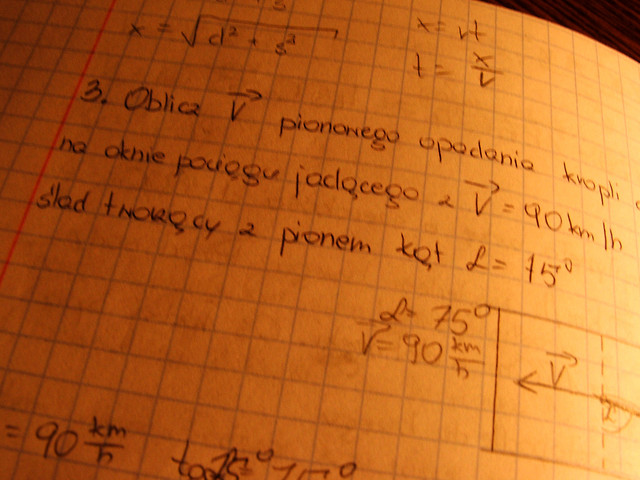 x = √d² + s²
x = vt
t = x/v
3. Oblicz V⃗ pionowego opadania kropli
na oknie pociągu jadącego z V⃗ = 90 km/h
ślad tworzący z pionem kąt α = 75°
α = 75°
V = 90 km/h
V⃗
= 90 km/h